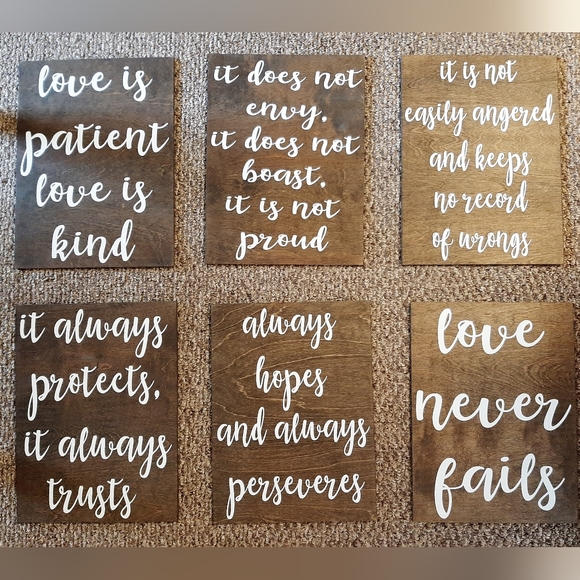 love is
patient
love is
kind
it does not
envy.
it does not
boast.
it is not
proud
it is not
easily angered
and keeps
no record
of wrongs
it always
protects,
it always
trusts
always
hopes
and always
perseveres
love
never
fails